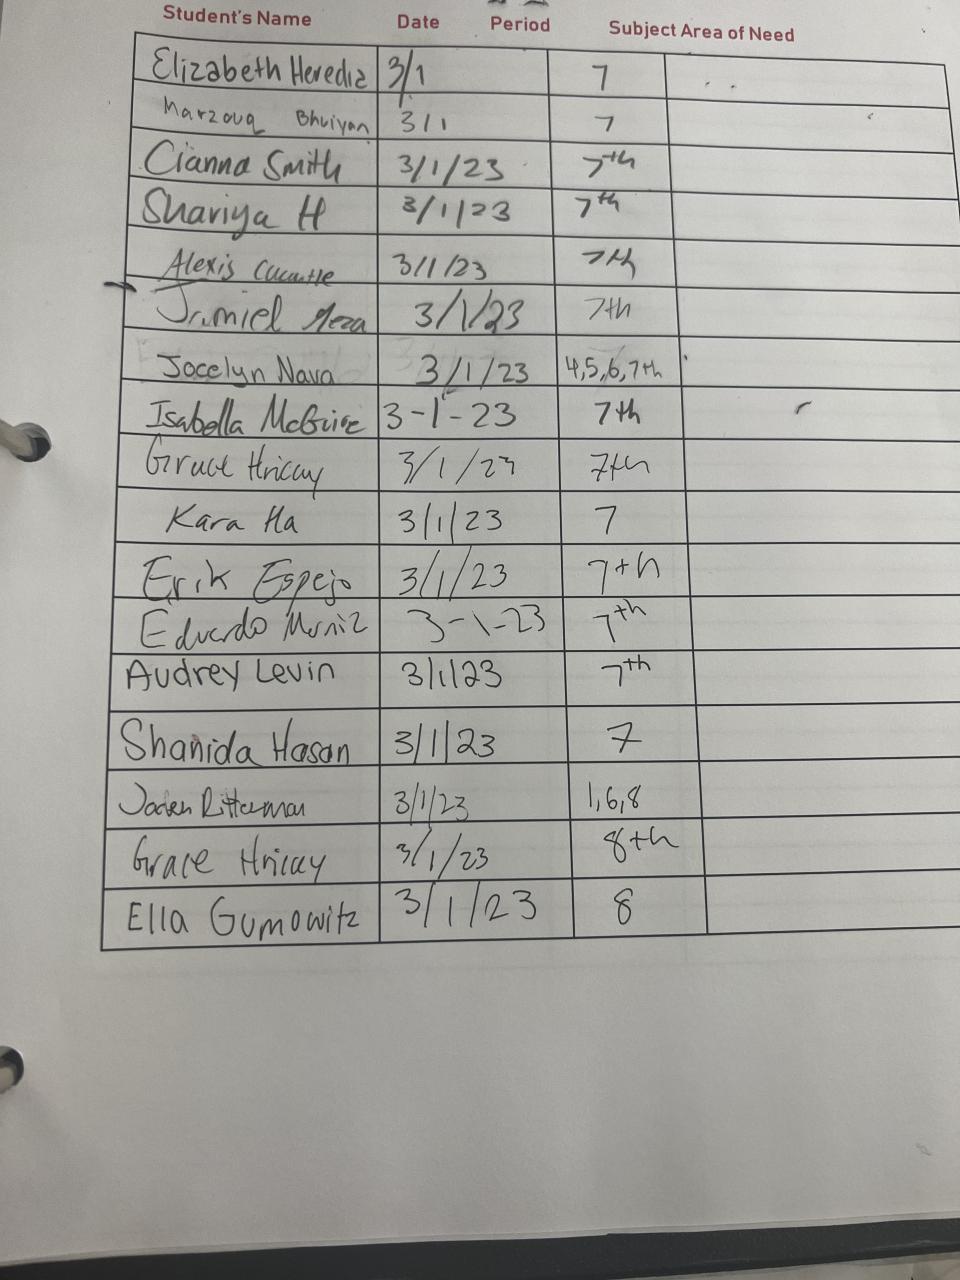 Student's Name Date Period Subject Area of Need
Elizabeth Heredia 3/1 7
Marzouq Bhuiyan 3/1 7
Cianna Smith 3/1/23 7th
Shariya H 3/1/23 7th
Alexis 3/1/23 7th
Meza 3/1/23 7th
Jocelyn Nava 3/1/23 4,5,6,7th
Isabella McGuire 3-1-23 7th
Grace Hricay 3/1/23 7th
Kara Ha 3/1/23 7
Erik Espejo 3/1/23 7th
Eduardo Muniz 3-1-23 7th
Audrey Levin 3/1/23 7th
Shanida Hasan 3/1/23 7
Jaden Ritterman 3/1/23 1,6,8
Grace Hricay 3/1/23 8th
Ella Gumowitz 3/1/23 8